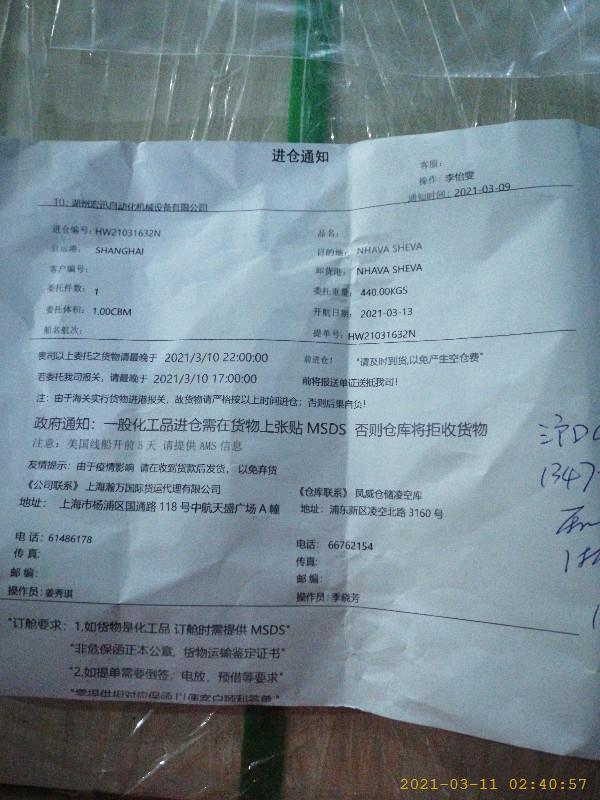 进仓通知
客服：
操作：李怡雯
通知时间：2021-03-09
TO：湖州宏迅自动化机械设备有限公司
进仓编号：HW21031632N 品名：
启运港： SHANGHAI 目的地： NHAVA SHEVA
客户编号： 卸货港： NHAVA SHEVA
委托件数： 1 委托重量： 440.00KGS
委托体积： 1.00CBM 开航日期： 2021-03-13
船名航次： 提单号：HW21031632N
贵司以上委托之货物请最晚于 2021/3/10 22:00:00 前进仓！ "请及时到货，以免产生空仓费"
若委托我司报关，请最晚于 2021/3/10 17:00:00 前将报送单证送抵我司！
注：由于海关实行货物进港报关，故货物请严格按以上时间进仓；否则后果自负！
政府通知：一般化工品进仓需在货物上张贴 MSDS 否则仓库将拒收货物
注意：美国线船开前 5 天 请提供 AMS 信息
友情提示：由于疫情影响 请在收到货款后发货， 以免弃货
《公司联系》上海瀚万国际货运代理有限公司 《仓库联系》凤威仓储凌空库
地址： 上海市杨浦区国通路 118 号中航天盛广场 A 幢 地址： 浦东新区凌空北路 3160 号
电话：61486178 电话： 66762154
传真： 传真：
邮编： 邮编：
操作员：姜秀琪 操作员：季晓芳
"订舱要求：1,如货物是化工品 订舱时需提供 MSDS"
"非危保函正本公章，货物运输鉴定证书"
"2,如提单需要倒签，电放，预借等要求"
"需提供相对应保函 以便客户顺利签单"
沪D
1347
2021-03-11 02:40:57